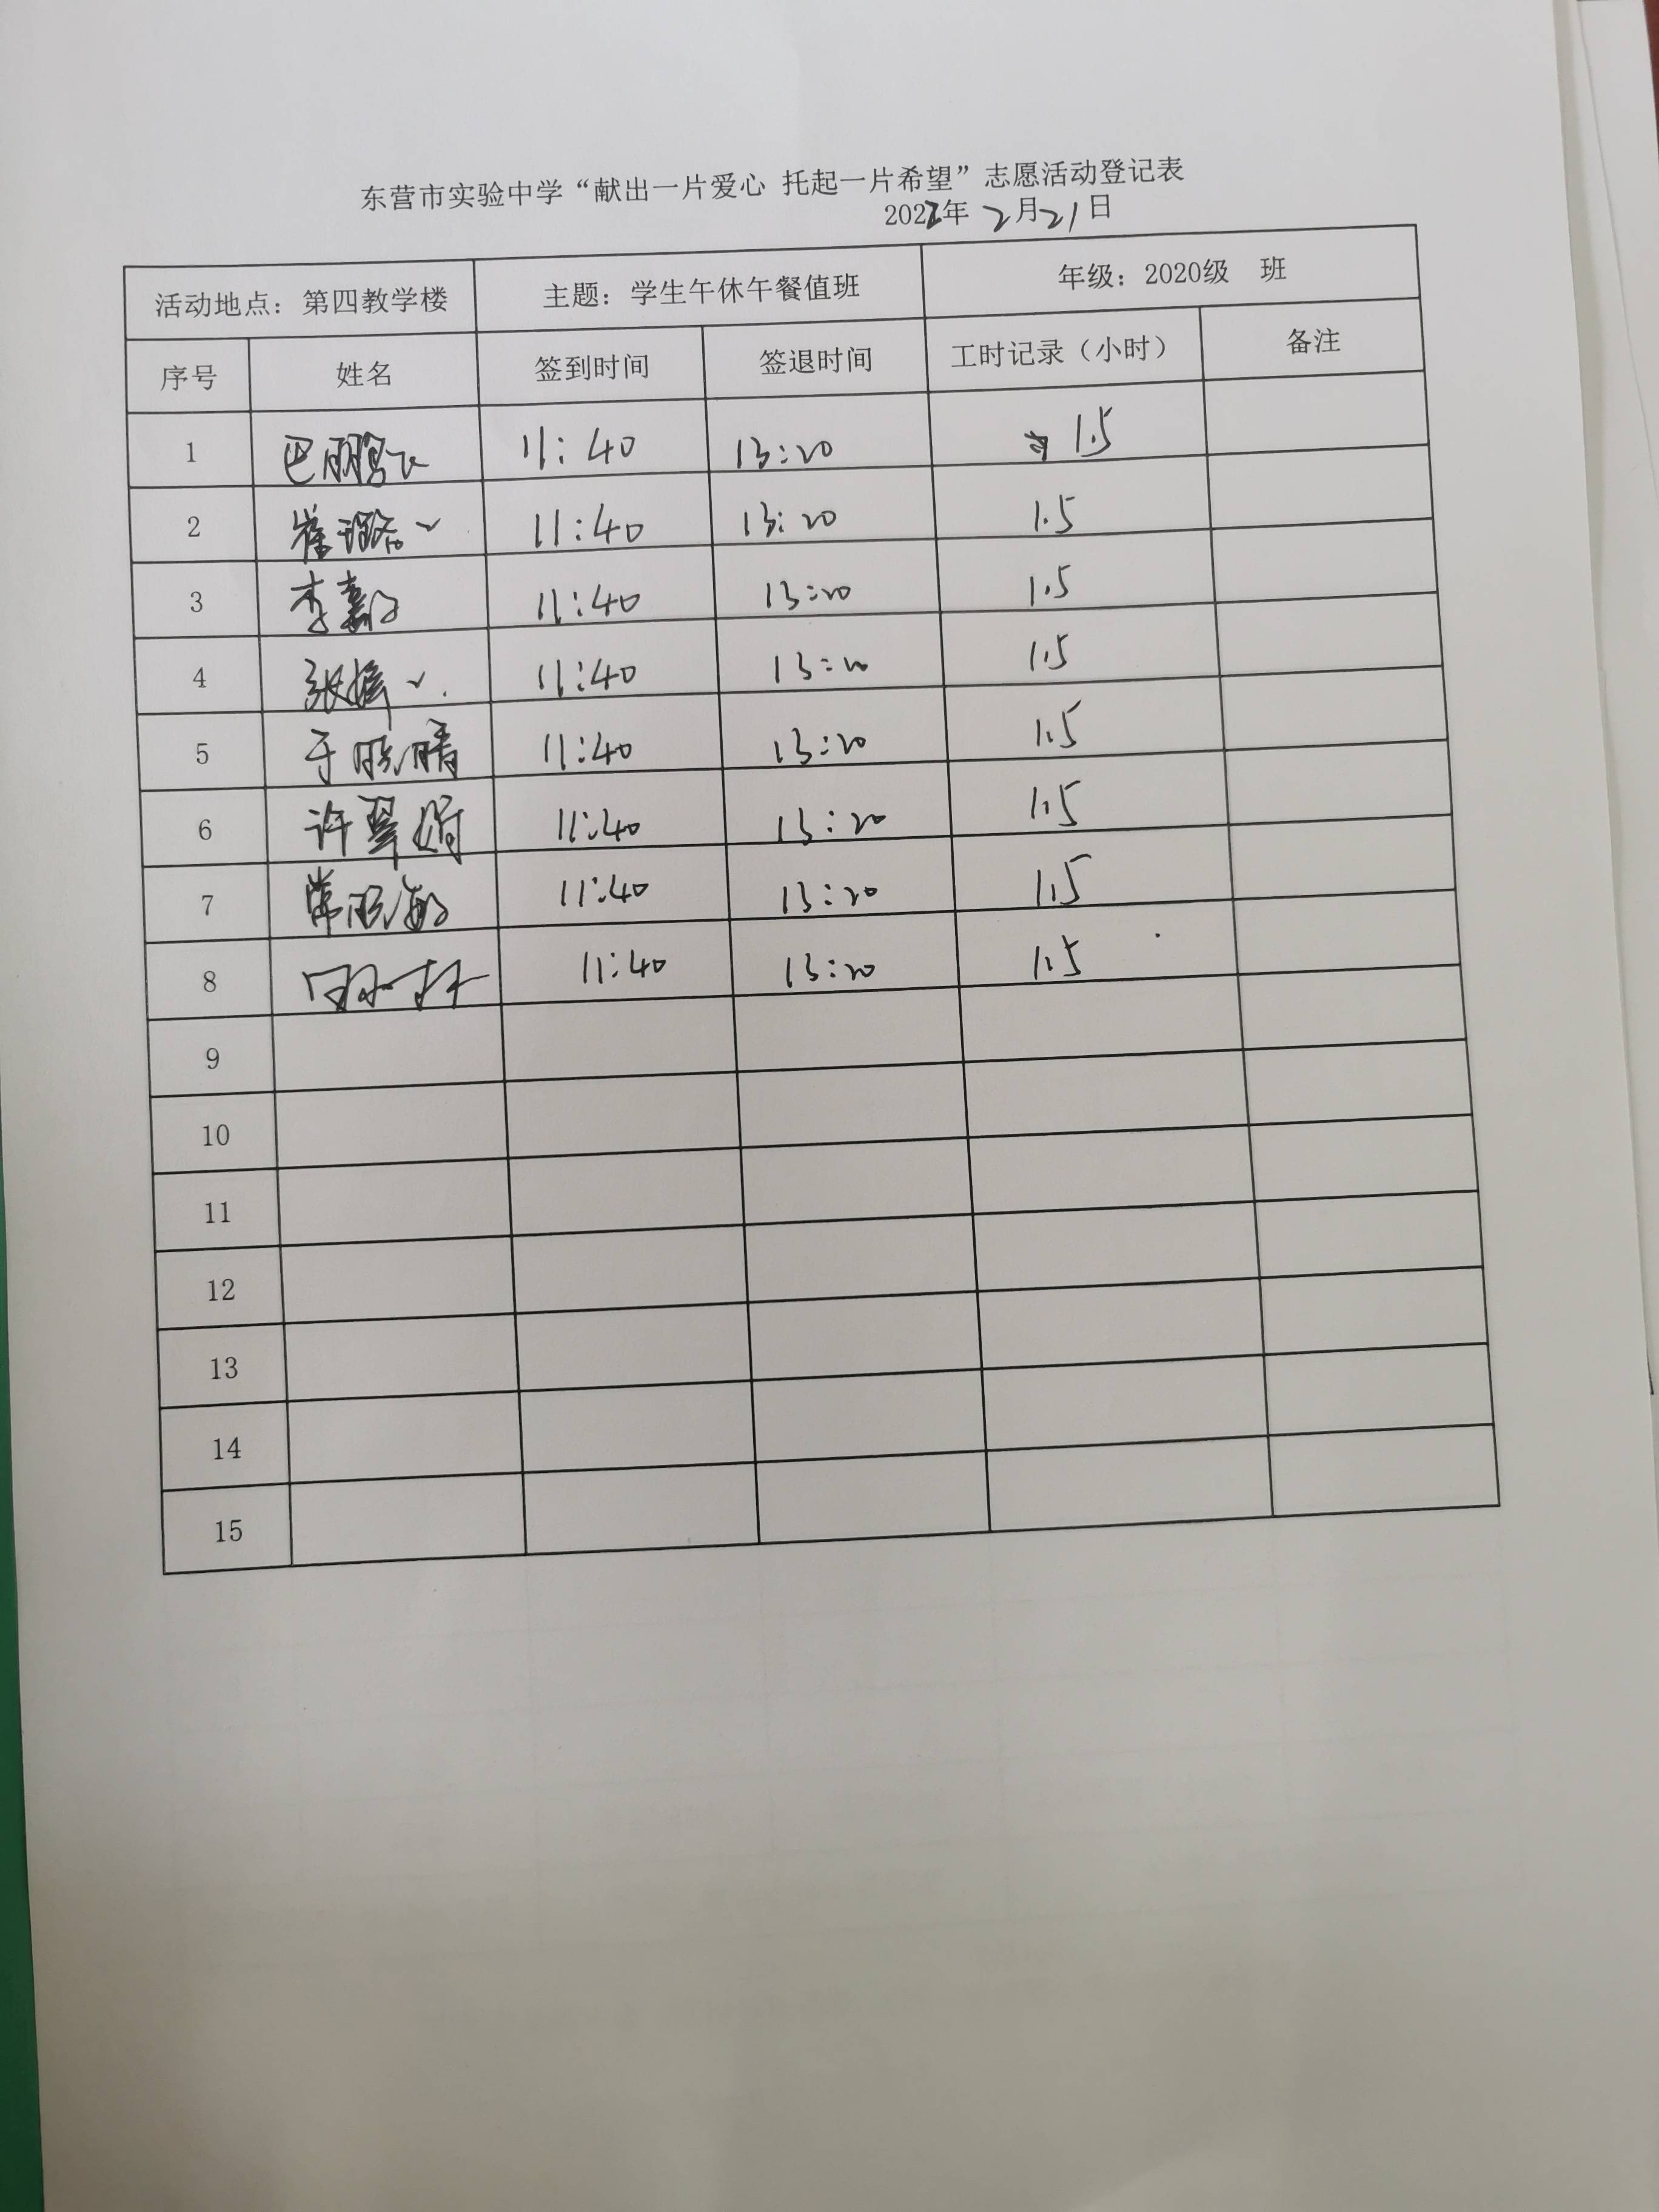 东营市实验中学“献出一片爱心 托起一片希望”志愿活动登记表
2022年 2月21日
活动地点：第四教学楼 主题：学生午休午餐值班 年级：2020级 班
序号 姓名 签到时间 签退时间 工时记录（小时） 备注
1 巴鹏飞 11:40 13:20 1.5
2 崔璐 11:40 13:20 1.5
3 李 11:40 13:20 1.5
4 张 11:40 13:20 1.5
5 于晓晴 11:40 13:20 1.5
6 许翠娟 11:40 13:20 1.5
7 常晓敏 11:40 13:20 1.5
8 11:40 13:20 1.5
9
10
11
12
13
14
15